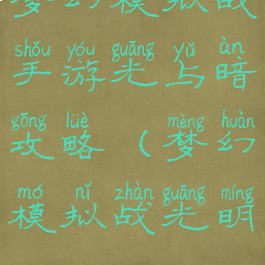 梦幻模拟战
shǒu yóu guāng yǔ àn
手游光与暗
gōng lüè mèng huàn
攻略(梦幻
mó nǐ zhàn guāng míng
模拟战光明